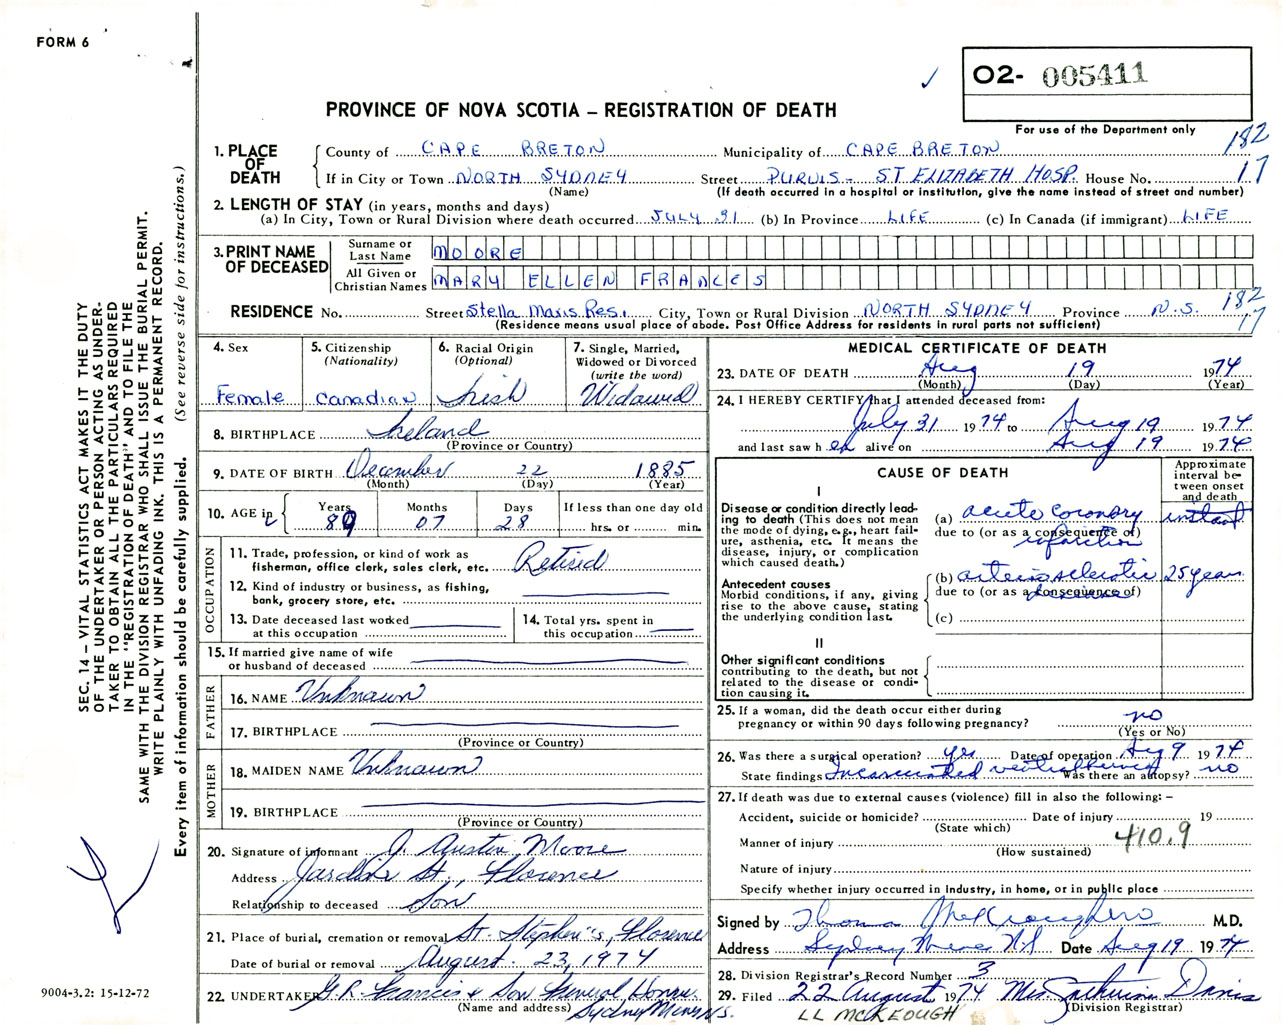 FORM 6
O2- 005411
PROVINCE OF NOVA SCOTIA – REGISTRATION OF DEATH
For use of the Department only
182
17
1. PLACE OF DEATH
County of CAPE BRETON Municipality of CAPE BRETON
If in City or Town NORTH SYDNEY Street ST ELIZABETH HOSP. House No.
(Name) (If death occurred in a hospital or institution, give the name instead of street and number)
2. LENGTH OF STAY (in years, months and days)
(a) In City, Town or Rural Division where death occurred JULY 31 (b) In Province LIFE (c) In Canada (if immigrant) LIFE
3. PRINT NAME OF DECEASED
Surname or Last Name MOORE
All Given or Christian Names MARY ELLEN FRANCES
RESIDENCE No. Street Stella Maris Res. City, Town or Rural Division NORTH SYDNEY Province N.S.
182
17
(Residence means usual place of abode. Post Office Address for residents in rural parts not sufficient)
4. Sex
Female
5. Citizenship
(Nationality)
Canadian
6. Racial Origin
(Optional)
Irish
7. Single, Married,
Widowed or Divorced
(write the word)
Widowed
8. BIRTHPLACE Ireland
(Province or Country)
9. DATE OF BIRTH December 22 1885
(Month) (Day) (Year)
10. AGE in
Years Months Days If less than one day old
89 07 28 hrs. or min.
OCCUPATION
11. Trade, profession, or kind of work as
fisherman, office clerk, sales clerk, etc. Retired
12. Kind of industry or business, as fishing,
bank, grocery store, etc.
13. Date deceased last worked
at this occupation
14. Total yrs. spent in
this occupation
15. If married give name of wife
or husband of deceased
FATHER
16. NAME Unknown
17. BIRTHPLACE
(Province or Country)
MOTHER
18. MAIDEN NAME Unknown
19. BIRTHPLACE
(Province or Country)
20. Signature of informant J. Austin Moore
Address Jardine St., Florence
Relationship to deceased Son
21. Place of burial, cremation or removal St. Stephen's, Florence
Date of burial or removal August 23, 1974
22. UNDERTAKER G.R. Francis & Son Funeral Home
(Name and address) Sydney Mines N.S.
MEDICAL CERTIFICATE OF DEATH
23. DATE OF DEATH Aug 19 1974
(Month) (Day) (Year)
24. I HEREBY CERTIFY that I attended deceased from:
July 31 1974 to Aug 19 1974
and last saw h er alive on Aug 19 1974
CAUSE OF DEATH
Approximate
interval be-
tween onset
and death
I
Disease or condition directly lead-
ing to death (This does not mean
the mode of dying, e.g., heart fail-
ure, asthenia, etc. It means the
disease, injury, or complication
which caused death.)
(a) acute coronary instant
due to (or as a consequence of)
infarction
Antecedent causes
Morbid conditions, if any, giving
rise to the above cause, stating
the underlying condition last.
(b) arteriosclerotic 25 years
due to (or as a consequence of)
disease
(c)
II
Other significant conditions
contributing to the death, but not
related to the disease or condi-
tion causing it.
25. If a woman, did the death occur either during
pregnancy or within 90 days following pregnancy? no
(Yes or No)
26. Was there a surgical operation? yes Date of operation Aug 9 1974
State findings Incarcerated ventral hernia Was there an autopsy? no
27. If death was due to external causes (violence) fill in also the following: –
Accident, suicide or homicide? Date of injury 19
(State which)
Manner of injury 410.9
(How sustained)
Nature of injury
Specify whether injury occurred in industry, in home, or in public place
Signed by Thomas M.D.
Address Sydney Mines NS Date Aug 19 1974
28. Division Registrar's Record Number 3
29. Filed 22 August 1974 Mrs. Catherine Davis
(Division Registrar)
LL McKEOUGH
SEC. 14 – VITAL STATISTICS ACT MAKES IT THE DUTY
OF THE UNDERTAKER OR PERSON ACTING AS UNDER-
TAKER TO OBTAIN ALL THE PARTICULARS REQUIRED
IN THE "REGISTRATION OF DEATH" AND TO FILE THE
SAME WITH THE DIVISION REGISTRAR WHO SHALL ISSUE THE BURIAL PERMIT.
WRITE PLAINLY WITH UNFADING INK. THIS IS A PERMANENT RECORD.
Every item of information should be carefully supplied. (See reverse side for instructions.)
9004-3.2: 15-12-72